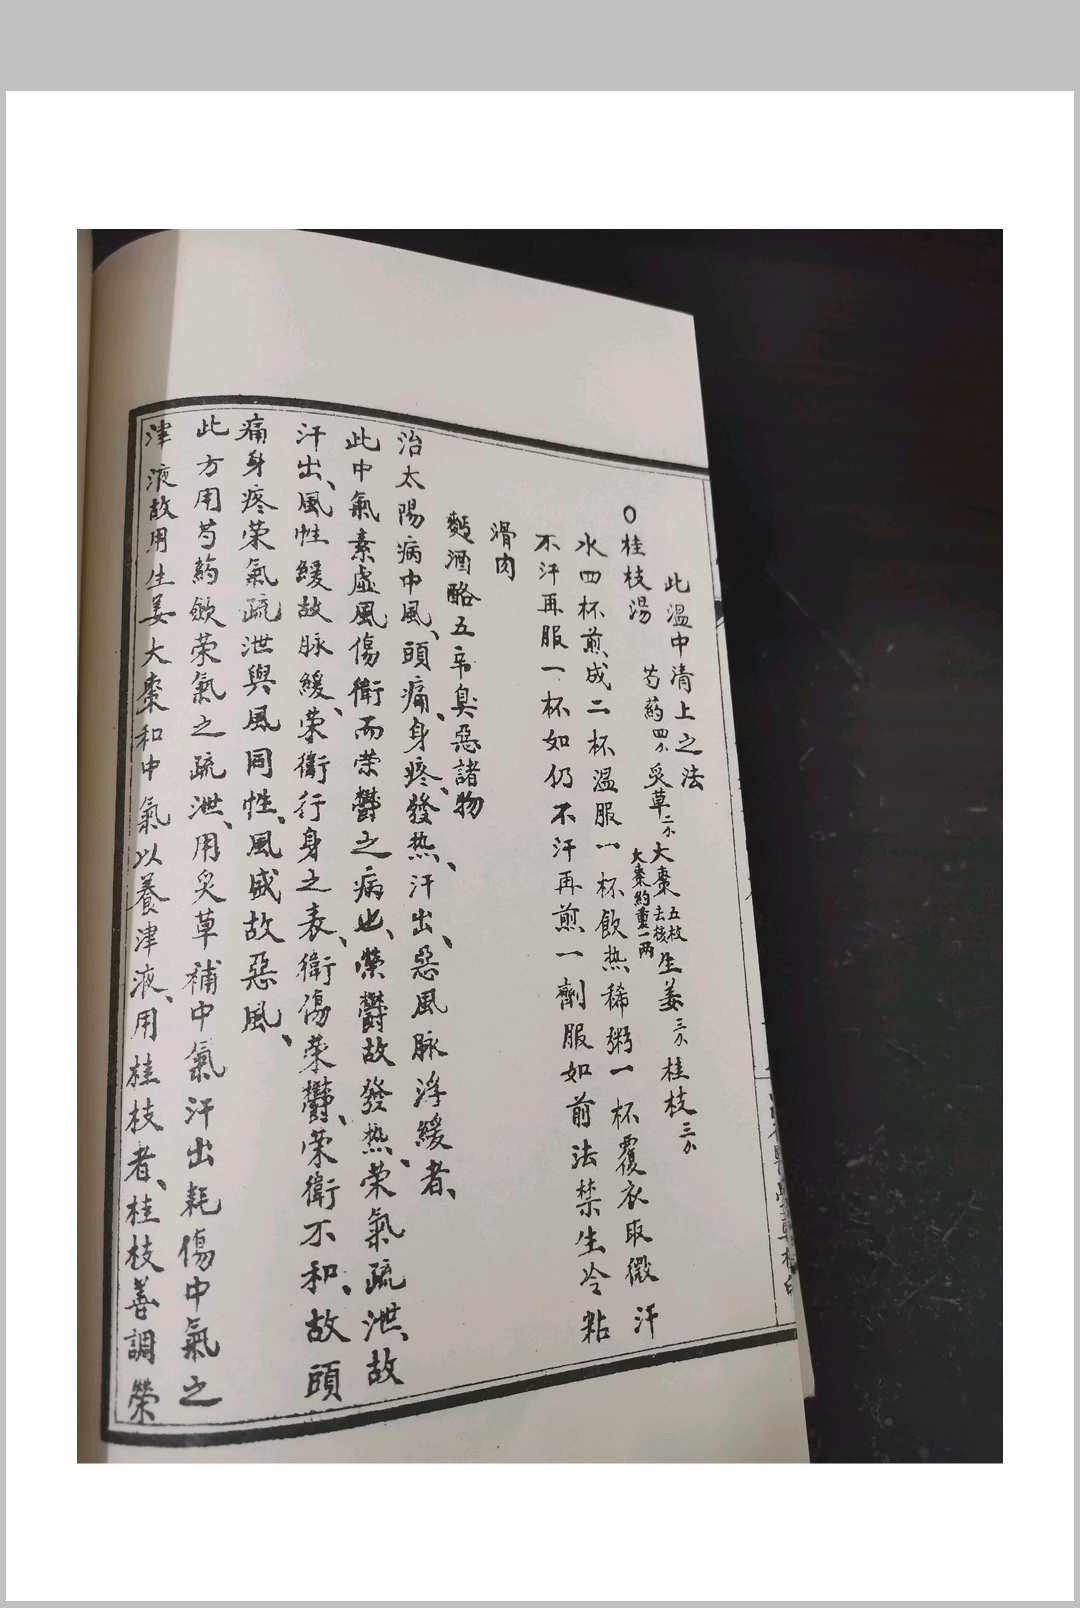 此溫中清上之法
〇桂枝湯 芍葯四分 炙草二分 大棗五枚去核 大棗約重一两 生姜三分 桂枝三分
水四杯煎成二杯溫服一杯飲热稀粥一杯覆衣取微汗
不汗再服一杯如仍不汗再煎一劑服如前法禁生冷粘
滑肉
麫酒酪五辛臭惡諸物
治太陽病中風、頭痛、身疼、發热、汗出、惡風脉浮緩者、
此中氣素虛風傷衛而荣鬱之病也、榮鬱故發热、荣氣疏泄、故
汗出、風性緩故脉緩、荣衛行身之表、衛傷荣鬱、荣衛不和、故頭
痛身疼荣氣疏泄與風同性、風盛故惡風、
此方用芍葯斂荣氣之疏泄、用炙草補中氣汗出耗傷中氣之
津液故用生姜大棗和中氣以養津液、用桂枝者、桂枝善調榮